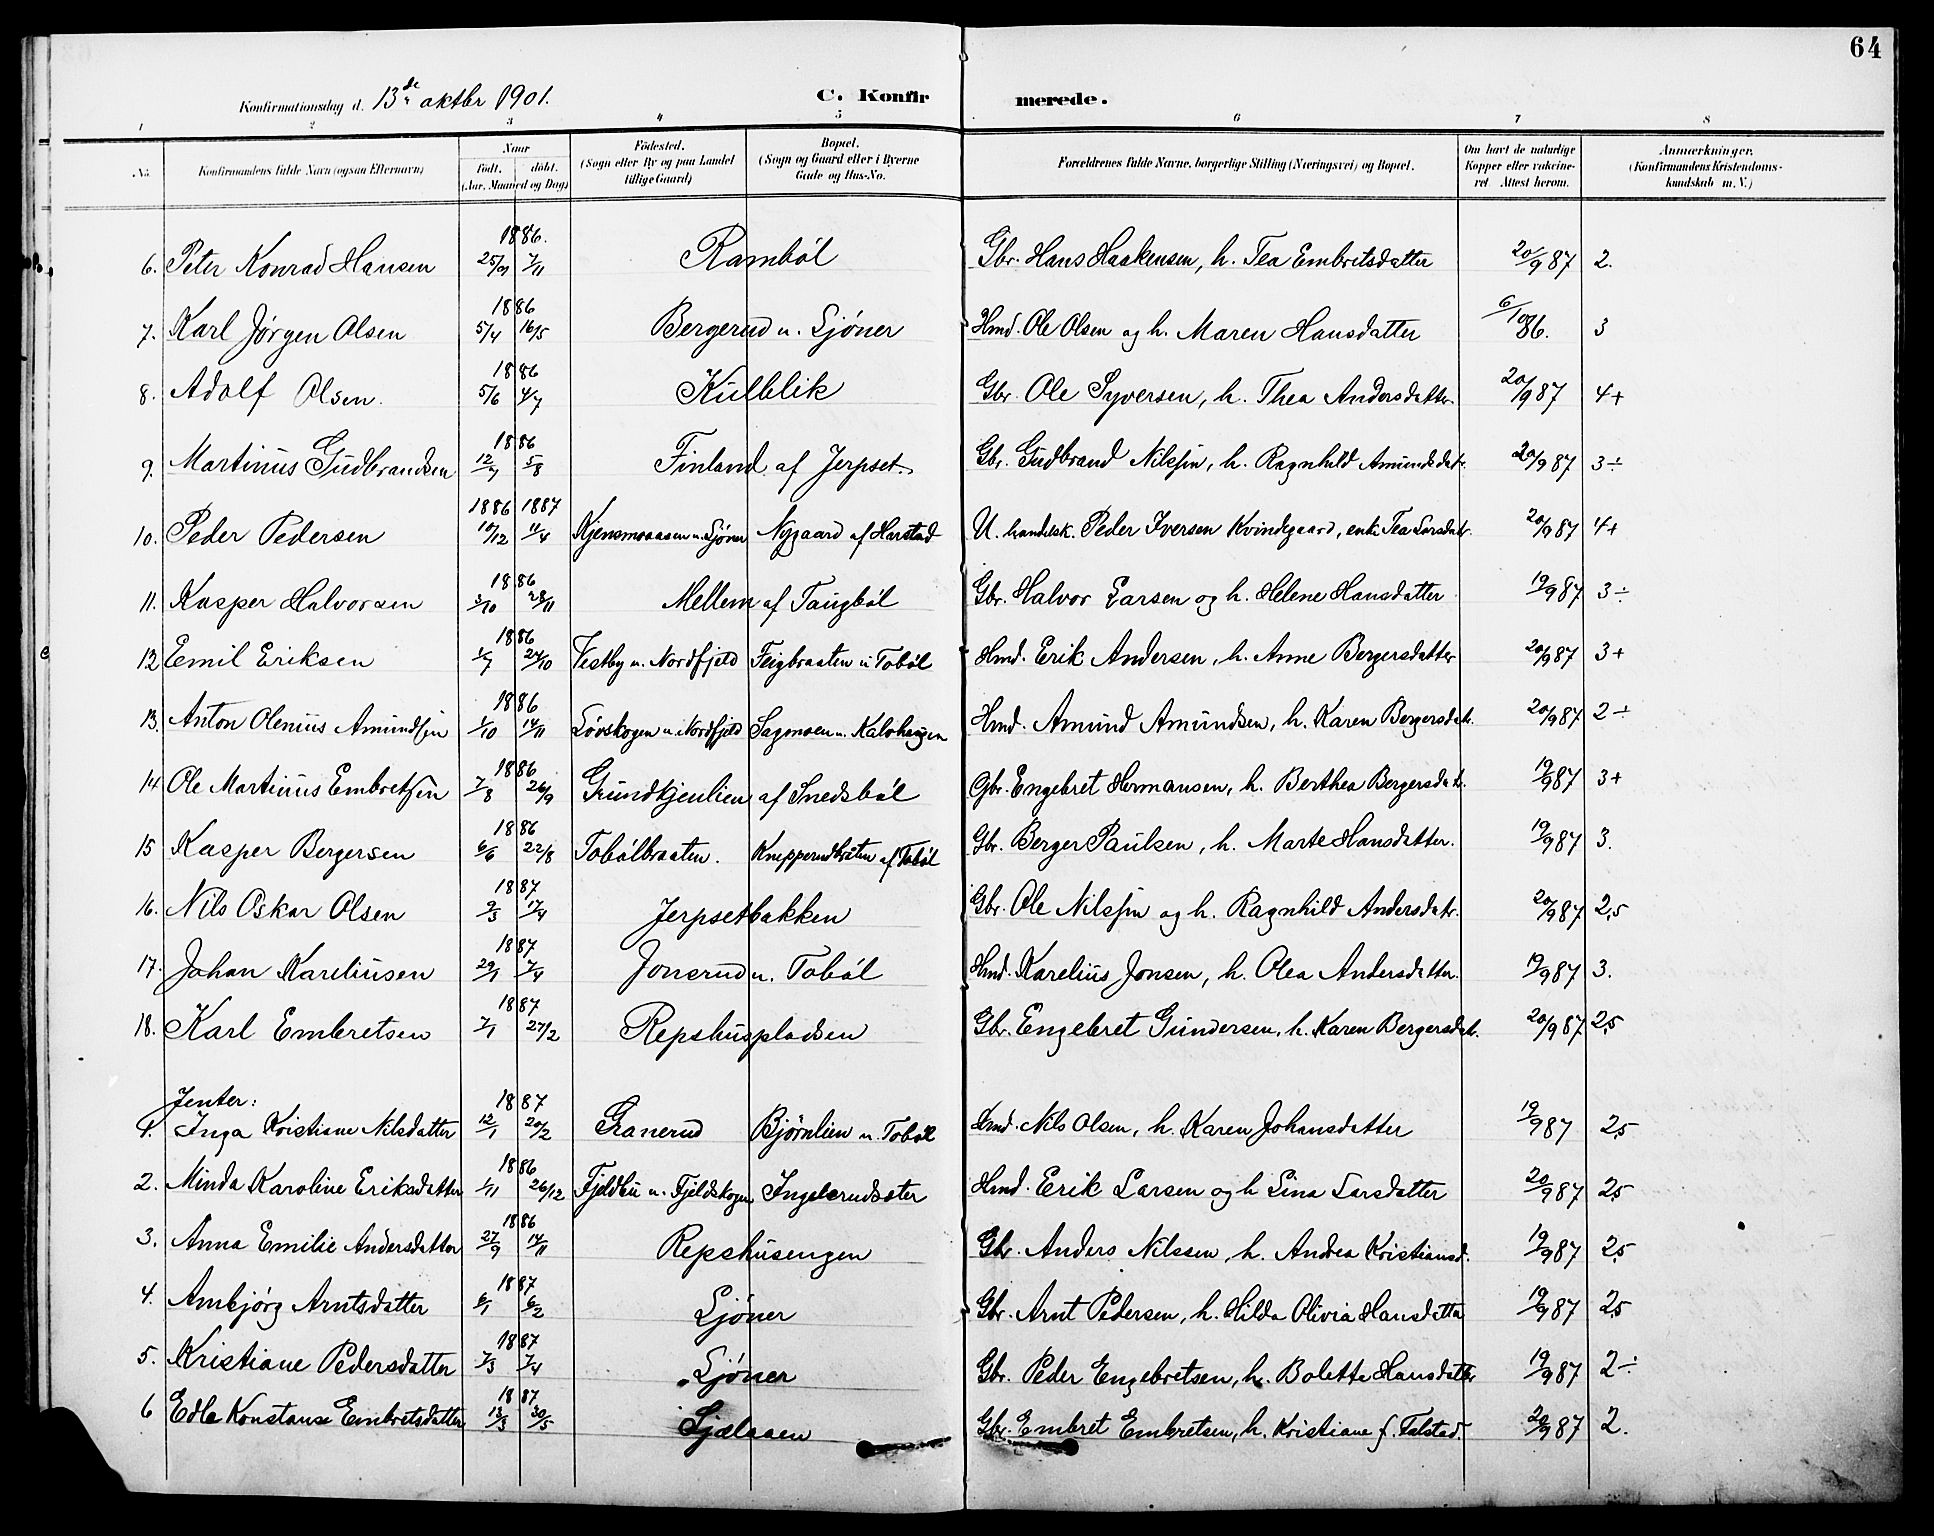 64
Konfirmationsdag d. 13de oktbr 1901. C. Konfirmerede.
1 2 3 4 5 6 7 8
No. Konfirmandens fulde Navn (ogsaa Efternavn) Naar født. døbt. (Aar, Maaned og Dag) Födested. (Sogn eller By og paa Landet tillige Gaard) Bopæl. (Sogn og Gaard eller i Byerne Gade og Hus-No. Forældrenes fulde Navne, borgerlige Stilling (Næringsvei) og Bopæl. Om havt de naturlige Kopper eller vakcineret. Attest herom. Anmærkninger. (Konfirmandens Kristendomskundskab m. V.)
1886.
6. Peter Konrad Hansen 25/9 7/11 Rambøl Gbr. Hans Haakensen, h. Tea Embretsdatter 20/9 87 2.
1886
7. Karl Jørgen Olsen 5/4 16/5 Bergerud u. Sjøner Hmd. Ole Olsen og h. Maren Hansdatter 6/10 86. 3
1886
8. Adolf Olsen. 5/6 4/7 Kulblik Gbr. Ole Syversen, h. Thea Andersdatter. 20/9 87 4+
1886
9. Martinus Gudbrandsen 12/7 5/8 Finland af Jerpset. Gbr. Gudbrand Nilssen, h. Ragnhild Amundsdatr. 20/9 87 3÷
1886 1887
10. Peder Pedersen 10/12 11/4 Kjensmoaasen u. Sjøner Nygaard af Harstad U. handelsk. Peder Iversen Kvindegaard, enke Tea Larsdatr. 20/9 87 4+
1886
11. Kasper Halvorsen 3/10 28/11 Mellem af Taugbøl Gbr. Halvor Larsen og h. Helene Hansdatter 19/9 87 3÷
1886
12 Emil Eriksen 1/7 24/10 Vestby u. Nordfjeld Feigbraaten u Tobøl Hmd. Erik Andersen, h. Anne Bergersdatter 20/9 87 3+
1886
13. Anton Olenius Amundsen 1/10 14/11 Løvskogen u. Nordfjeld Sagmoen u. Kalvhaugen Hmd. Amund Amundsen, h. Karen Bergersdatr. 20/9 87 2÷
1886
14 Ole Martinius Embretsen 7/8 26/9 Grundtjenlien af Snedsbøl Gbr. Engebret Hermansen, h. Berthea Bergersdatr. 19/9 87 3+
1886
15 Kasper Bergersen 6/6 22/8 Tobølbraaten. Knepperudbråten af Tobøl Gbr. Berger Paulsen, h. Marte Hansdatter. 19/9 87 3.
1887
16. Nils Oskar Olsen 9/3 17/4 Jerpsetbakken Gbr. Ole Nilssen og h. Ragnhild Andersdatr. 20/9 87 2,5
1887
17. Johan Kareliusen 29/1 7/4 Jonsrud u. Tobøl Hmd. Karelius Jonsen, h. Olea Andersdatter. 19/9 87 3.
1887
18. Karl Embretsen 7/1 27/2 Repshuspladsen Gbr. Engebret Gundersen, h. Karen Bergersdatr. 20/9 87 2,5
Jenter: 1887
1. Inga Kristiane Nilsdatter 12/1 20/2 Granerud Bjørnlien u. Tobøl Hmd. Nils Olsen, h. Karen Johansdatter 19/9 87 2,5
1886
2. Minda Karoline Eriksdatter 1/11 26/12 Fjeldbu u. Fjeldskogen Ingelsrudsæter Hmd. Erik Larsen og h Lina Larsdatter 20/9 87 2,5
1886
3. Anna Emilie Andersdatter 27/9 14/11 Repshusengen Gbr. Anders Nilssen, h. Andrea Kristiansd. 19/9 87 2,5
1887
4. Ambjørg Arntsdatter 6/1 6/2 Sjøner Gbr. Arnt Pedersen, h. Hilda Olivia Hansdatter 19/9 87 2,5
1887
5. Kristiane Pedersdatter 7/3 7/4 Sjøner Gbr. Peder Engebretsen, h. Bolette Hansdatter 19/9 87 2÷
1887
6 Edle Konstanse Embretsdatter 13/3 30/5 Sjølaaen Gbr. Embret Embretsen, h. Kristiane f. Tolstad. 20/9 87 2.